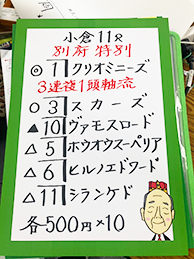 小倉11R
別府特別
◎ 1 クリオミニーズ
3連複1頭軸流
○ 3 スカーズ
▲ 10 ヴァモスロード
△ 5 ホウオウスーペリア
△ 6 ヒルノエドワード
△ 11 シランケド
各500円×10